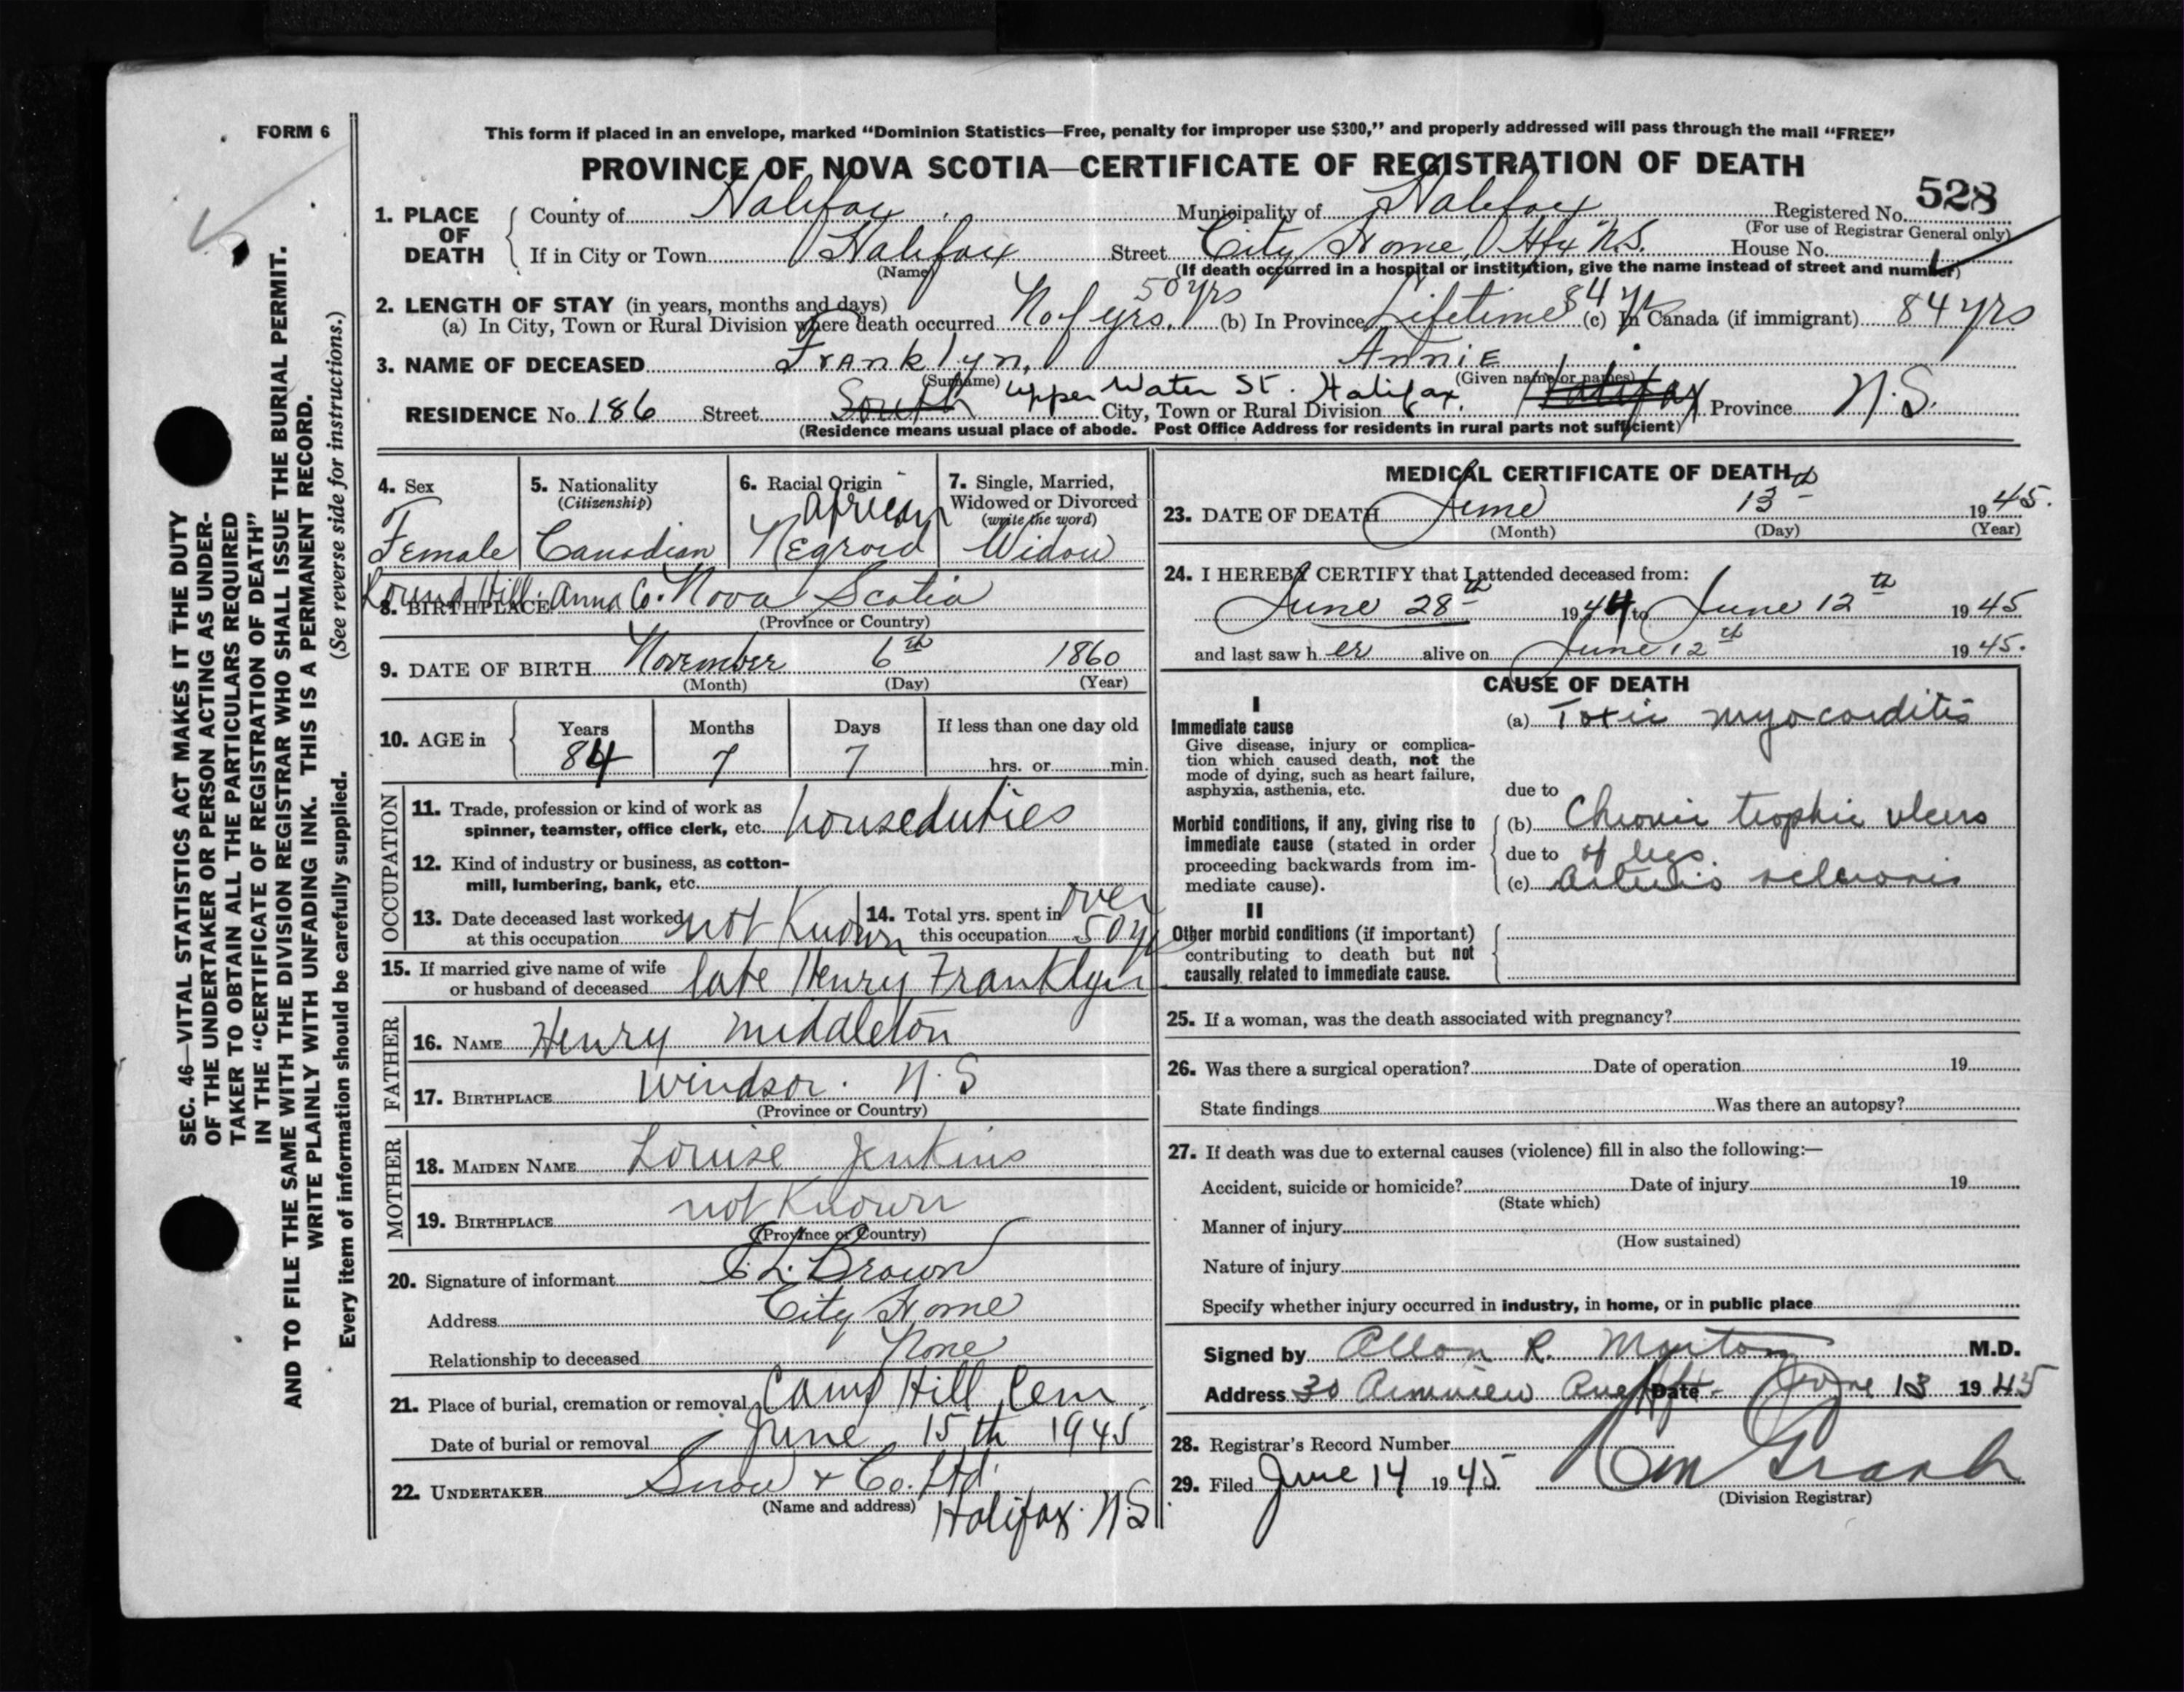 FORM 6
This form if placed in an envelope, marked “Dominion Statistics—Free, penalty for improper use $300,” and properly addressed will pass through the mail “FREE”
PROVINCE OF NOVA SCOTIA—CERTIFICATE OF REGISTRATION OF DEATH
528
1. PLACE OF DEATH
County of Halifax Municipality of Halifax Registered No.
(For use of Registrar General only)
If in City or Town Halifax Street City Home, Hfx N.S. House No.
(Name)
(If death occurred in a hospital or institution, give the name instead of street and number)
2. LENGTH OF STAY (in years, months and days) 50 yrs 84 yrs
(a) In City, Town or Rural Division where death occurred No of yrs. (b) In Province Lifetime (c) In Canada (if immigrant) 84 yrs
3. NAME OF DECEASED Franklyn, Annie
(Surname) (Given name or names)
RESIDENCE No. 186 Street South Upper Water St. Halifax. City, Town or Rural Division Halifax Province N.S.
(Residence means usual place of abode. Post Office Address for residents in rural parts not sufficient)
4. Sex
Female
5. Nationality
(Citizenship)
Canadian
6. Racial Origin
African
Negroid
7. Single, Married, Widowed or Divorced
(write the word)
Widow
8. BIRTHPLACE Round Hill. Anna Co. Nova Scotia
(Province or Country)
9. DATE OF BIRTH November 6th 1860
(Month) (Day) (Year)
10. AGE in
Years Months Days If less than one day old
84 7 7 hrs. or min.
OCCUPATION
11. Trade, profession or kind of work as
spinner, teamster, office clerk, etc. houseduties
12. Kind of industry or business, as cotton-
mill, lumbering, bank, etc.
13. Date deceased last worked
at this occupation not Known
14. Total yrs. spent in
this occupation over 50 yrs
15. If married give name of wife
or husband of deceased late Henry Franklyn
FATHER
16. NAME Henry Middleton
17. BIRTHPLACE Windsor. N.S
(Province or Country)
MOTHER
18. MAIDEN NAME Louise Jenkins
19. BIRTHPLACE not Known
(Province or Country)
20. Signature of informant L. Brown
Address City Home
Relationship to deceased None
21. Place of burial, cremation or removal Camp Hill Cem
Date of burial or removal June 15th 1945
22. UNDERTAKER Snow & Co. Ltd.
(Name and address) Halifax. NS
MEDICAL CERTIFICATE OF DEATH
23. DATE OF DEATH June 13th 1945.
(Month) (Day) (Year)
24. I HEREBY CERTIFY that I attended deceased from:
June 28th 1944 to June 12th 1945
and last saw h er alive on June 12th 1945.
CAUSE OF DEATH
I
Immediate cause
Give disease, injury or complica-
tion which caused death, not the
mode of dying, such as heart failure,
asphyxia, asthenia, etc.
(a) Toxic myocarditis
due to
Morbid conditions, if any, giving rise to
immediate cause (stated in order
proceeding backwards from im-
mediate cause).
(b) Chronic trophic ulcers
due to of legs.
(c) Arterio sclerosis
II
Other morbid conditions (if important)
contributing to death but not
causally related to immediate cause.
25. If a woman, was the death associated with pregnancy?
26. Was there a surgical operation? Date of operation 19
State findings Was there an autopsy?
27. If death was due to external causes (violence) fill in also the following:—
Accident, suicide or homicide? Date of injury 19
(State which)
Manner of injury
(How sustained)
Nature of injury
Specify whether injury occurred in industry, in home, or in public place
Signed by Allan R. Morton M.D.
Address 30 Armview Ave Hfx. Date June 13 1945
28. Registrar's Record Number
29. Filed June 14 1945
(Division Registrar)
SEC. 46—VITAL STATISTICS ACT MAKES IT THE DUTY
OF THE UNDERTAKER OR PERSON ACTING AS UNDER-
TAKER TO OBTAIN ALL THE PARTICULARS REQUIRED
IN THE “CERTIFICATE OF REGISTRATION OF DEATH”
AND TO FILE THE SAME WITH THE DIVISION REGISTRAR WHO SHALL ISSUE THE BURIAL PERMIT.
WRITE PLAINLY WITH UNFADING INK. THIS IS A PERMANENT RECORD.
Every item of information should be carefully supplied. (See reverse side for instructions.)